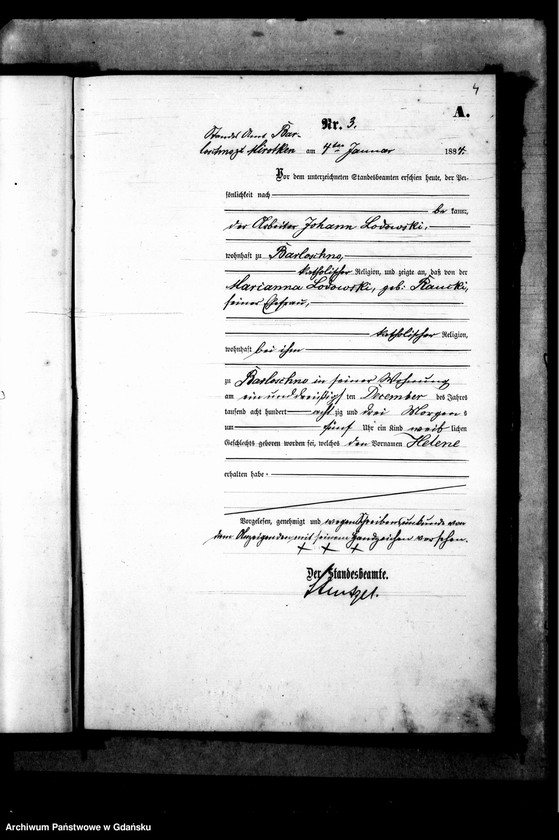 4
A.
Nr. 3.
Standes Amt Bar-
am 4ten Januar 1884.
Vor dem unterzeichneten Standesbeamten erschien heute, der Per-
sönlichkeit nach
be kannt,
der Arbeiter Johann Lodowski,
wohnhaft zu Barloschno,
katholischer Religion, und zeigte an, daß von der
Marianna Lodowski, geb:
seiner Ehefrau,
katholischer Religion,
wohnhaft bei ihm
zu Barloschno in seiner Wohnung
am einunddreißigsten December des Jahres
tausend acht hundert acht zig und drei Morgens
um fünf Uhr ein Kind weib lichen
Geschlechts geboren worden sei, welches den Vornamen Helene
erhalten habe.
Vorgelesen, genehmigt und wegen Schreibensunkunde von
dem Anzeigenden mit seinem Handzeichen versehen.
+ + +
Der Standesbeamte.
Archiwum Państwowe w Gdańsku